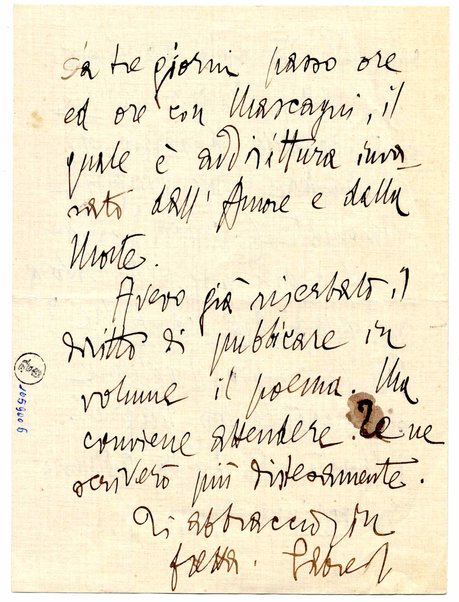 Da tre giorni passo ore
ed ore con Mascagni, il
quale è addirittura inva
sato dall'Amore e dalla
Morte.
Avevo già riserbato il
diritto di pubblicare in
volume il poema. Ma
conviene attendere. Te ne
scriverò più distesamente.
Ti abbraccio in
fretta.